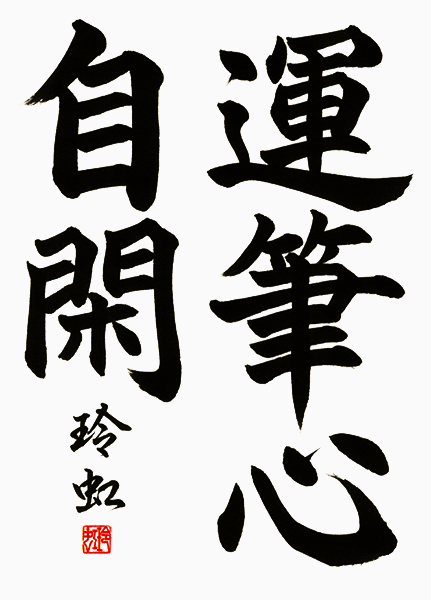 運筆心
自閑
玲虹